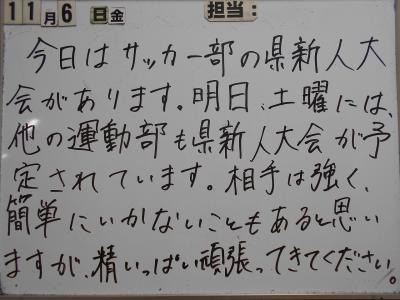 11月6日金 担当:
今日はサッカー部の県新人大
会があります。明日、土曜には、
他の運動部も県新人大会が予
定されています。相手は強く、
簡単にいかないこともあると思い
ますが、精いっぱい頑張ってきてください。